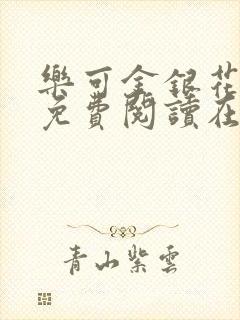 樂可金銀花
免費閱讀在
青山紫雲